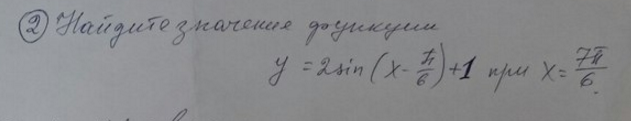 2) Найдите значение функции
y = 2sin(x - π/6) + 1 при x = 7π/6.